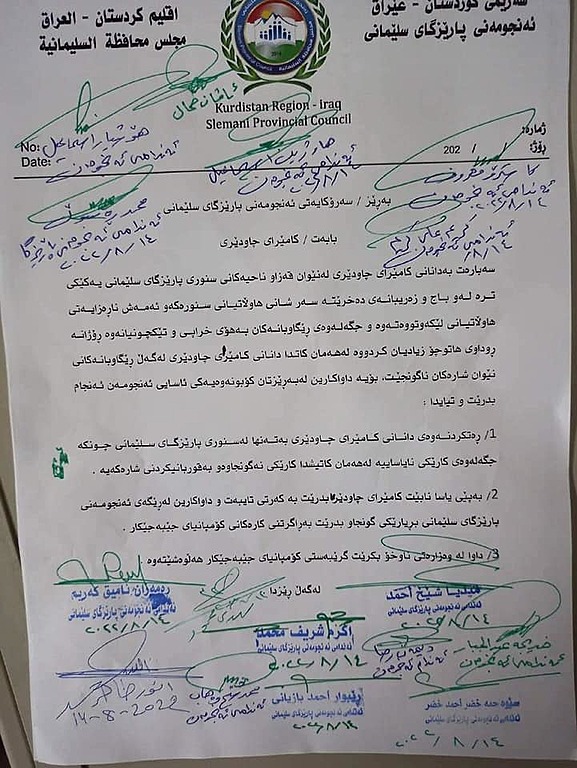 اقليم كردستان - العراق
مجلس محافظة السليمانية
هەرێمی کوردستان - عێراق
ئەنجومەنی پارێزگای سلێمانی
Kurdistan Region - iraq
Slemani Provincial Council
No:
Date:
ژمارە:
ڕۆژ: / / 202
بەڕێز / سەرۆکایەتی ئەنجومەنی پارێزگای سلێمانی
بابەت / کامێرای چاودێری
سەبارەت بەدانانی کامێرای چاودێری لەنێوان قەزاو ناحیەکانی سنوری پارێزگای سلێمانی یەکێکی
ترە لەو باج و زەریبانەی دەخرێتە سەر شانی هاوڵاتیانی سنورەکەو ئەمەش ناڕەزایەتی
هاوڵاتیانی لێکەوتووەتەوە و جگەلەوەی ڕێگاوبانەکان بەهۆی خرابی و تێکچونیانەوە ڕۆژانە
ڕوداوی هاتوچۆ زیادیان کردووە لەهەمان کاتدا دانانی کامێرای چاودێری لەگەڵ ڕێگاوبانەکانی
نێوان شارەکان ناگونجێت، بۆیە داواکارین لەبەڕێزتان کۆبونەوەیەکی ئاسایی ئەنجومەن ئەنجام
بدرێت و تیایدا :
1/ ڕەتکردنەوەی دانانی کامێرای چاودێری بەتەنها لەسنوری پارێزگای سلێمانی چونکە
جگەلەوەی کارێکی نایاساییە لەهەمان کاتیشدا کارێکی نەگونجاوەو بەقوربانیکردنی شارەکەیە .
2/ بەپێی یاسا نابێت کامێرای چاودێر بدرێت بە کەرتی تایبەت و داواکارین لەڕێگەی ئەنجومەنی
پارێزگای سلێمانی بڕیارێکی گونجاو بدرێت بەڕاگرتنی کارەکانی کۆمپانیای جێبەجێکار .
3/ داوا لە وەزارەتی ناوخۆ بکرێت گرێبەستی کۆمپانیای جێبەجێکار هەڵوەشێتەوە .
لەگەڵ ڕێزدا
ڕەمەزان نامیق کەریم
ئەندامی ئەنجومەنی پارێزگای سلێمانی
٢٠٢٢/٨/١٤
میدیا شێخ احمد
ئەندامی ئەنجومەنی پارێزگای سلێمانی
٢٠٢٢/٨/١٤
اکرم شریف محمد
ئەندامی ئەنجومەنی پارێزگای سلێمانی
٢٠٢٢/٨/١٤
ڕێبوار احمد بازیانی
ئەندامی ئەنجومەنی پارێزگای سلێمانی
٢٠٢٢/٨/١٤
سێوە حمە خضر احمد خضر
ئەندامی ئەنجومەنی پارێزگای سلێمانی
٢٠٢٢/٨/١٤
١٤-8-2022